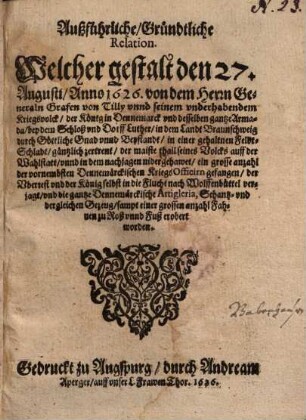 N. 23.
Außführliche/Gründtliche
Relation.
Welcher gestalt den 27.
Augusti/Anno 1626. von dem Herrn Ge-
neraln Grafen von Tilly vnnd seinem vnderhabendem
Kriegsvolck/ der König in Dennemarck vnd desselben gantze Arma-
da/bey dem Schloß vnd Dorff Lutter/in dem Landt Braunschweig
durch Göttliche Gnad vnnd Beystandt/ in einer gehaltnen Feldt-
Schlacht/gäntzlich zertrent/ der maiste theil seines Volcks auff der
Wahlstatt/vnnd in dem nachjagen nidergehawet/ ein grosse anzahl
der vornembsten Dennemärckischen KriegsOfficirn gefangen/ der
Vberrest vnd der König selbst in die Flucht nach Wolffenbüttel ver-
jagt/vnd die gantze Dennemärckische Artigleria, Schantz- vnd
dergleichen Gezeug/sampt einer grossen anzahl Fah-
nen zu Roß vnnd Fuß erobert
worden.
Gedruckt zu Augspurg/durch Andream
Aperger/auff vnser L. Frawen Thor. 1626.